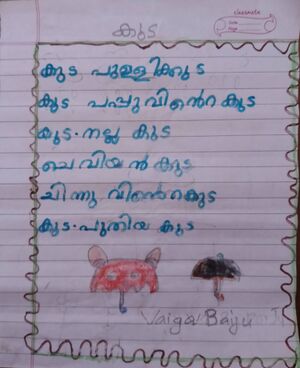 classmate
Date
Page
കുട
കുട പുള്ളിക്കുട
കുട പപ്പുവിൻെറ കുട
കുട. നല്ല കുട
ചെവിയൻ കുട
ചിന്നു വിൻെറ കുട
കുട. പുതിയ കുട
Vaiga Baiju